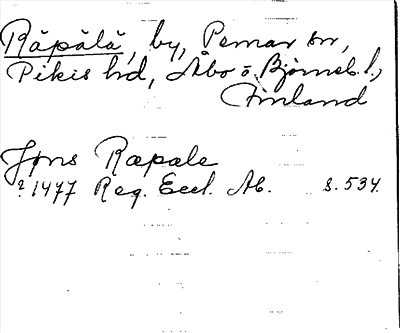 Räpälä, by, Pemar sn,
Pikis hd, Åbo o. Björneb. l.,
Finland
Jöns Ræpale
? 1477 Reg. Eccl. Ab. s. 534.